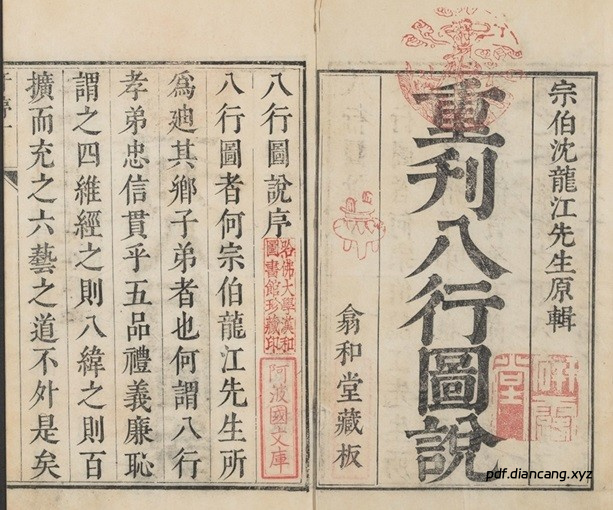 宗伯沈龍江先生原輯
重刊八行圖說
翕和堂藏板
八行圖說序
哈佛大學漢和
圖書館珍藏印
阿波國文庫
八行圖者何宗伯龍江先生所
為迪其鄉子弟者也何謂八行
孝弟忠信貫乎五品禮義廉恥
謂之四維經之則八緯之則百
擴而充之六藝之道不外是矣
pdf.diancang.xyz